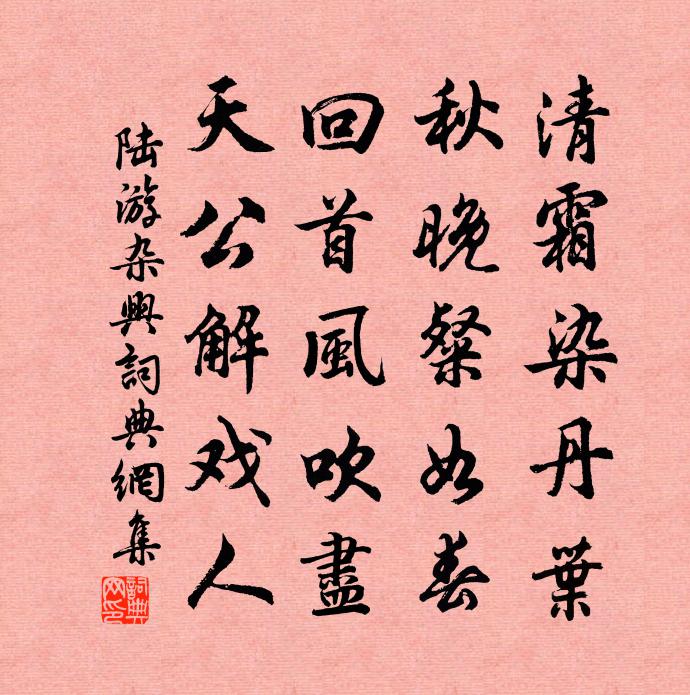 清霜染丹葉
秋晚粲如春
回首風吹盡
天公解戏人
陆游杂興詞典網集
詞典網印